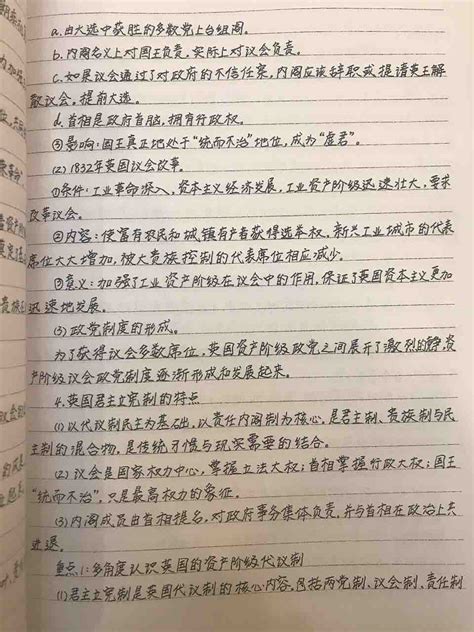 a.由大选中获胜的多数党上台组阁。
b.内阁名义上对国王负责,实际上对议会负责。
c.如果议会通过了对政府的不信任案,内阁应该辞职或提请英王解
散议会,提前大选。
d.首相是政府首脑,拥有行政权。
③影响:国王真正地处于“统而不治”地位,成为“虚君”。
(2)1832年英国议会改革。
①条件:工业革命深入,资本主义经济发展,工业资产阶级迅速壮大,要求
改革议会。
②内容:使富有农民和城镇有产者获得选举权,新兴工业城市的代表
席位大大增加,使大贵族控制的代表席位相应减少。
③意义:加强了工业资产阶级在议会中的作用,保证了英国资本主义更加
迅速地发展。
(3)政党制度的形成。
为了获得议会多数席位,英国资产阶级政党之间展开了激烈的争,资
产阶级议会政党制度逐渐形成和发展起来。
4.英国君主立宪制的特点
(1)以代议制民主为基础,以责任内阁制为核心,是君主制、贵族制与民
主制的混合物,是传统习惯与现实需要的结合。
(2)议会是国家权力中心,掌握立法大权;首相掌握行政大权;国王
“统而不治”,只是最高权力的象征。
(3)内阁成员由首相提名,对政府事务集体负责,并与首相在政治上共
进退。
重点1:多角度认识英国的资产阶级代议制
(1)君主立宪制是英国代议制的核心内容,包括两党制、议会制、责任制